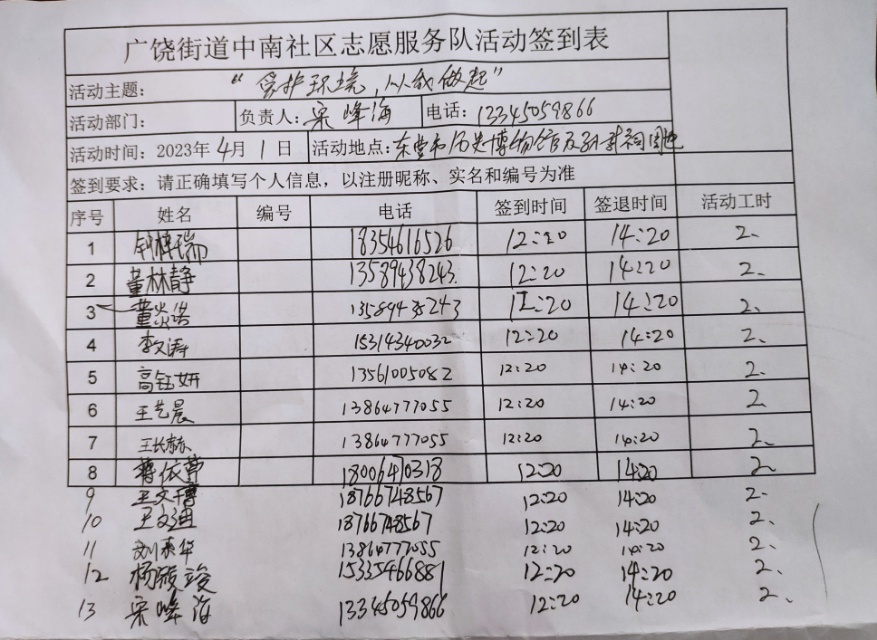 广饶街道中南社区志愿服务队活动签到表
活动主题: “爱护环境,从我做起”
活动部门: 负责人: 宋峰海 电话: 13345059866
活动时间: 2023年 4月 1 日 活动地点: 东营市历史博物馆及孙武祠周边
签到要求: 请正确填写个人信息，以注册昵称、实名和编号为准
序号 姓名 编号 电话 签到时间 签退时间 活动工时
1 瑞 18354616526 12:20 14:20 2、
2 董林静 13589438243 12:20 14:20 2、
3 董浩 13589438243 12:20 14:20 2、
4 李文涛 15314340032 12:20 14:20 2、
5 高钰妍 13561005082 12:20 14:20 2、
6 王艺晨 13864777055 12:20 14:20 2
7 王长赫 13864777055 12:20 14:20 2、
8 依 18006470318 12:20 14:20 2、
9 王文博 18766748567 12:20 14:20 2、
10 王文迪 18766748567 12:20 14:20 2、
11 刘英华 13864777055 12:20 14:20 2、
12 杨骏 15335466881 12:20 14:20 2、
13 宋峰海 13345059866 12:20 14:20 2、